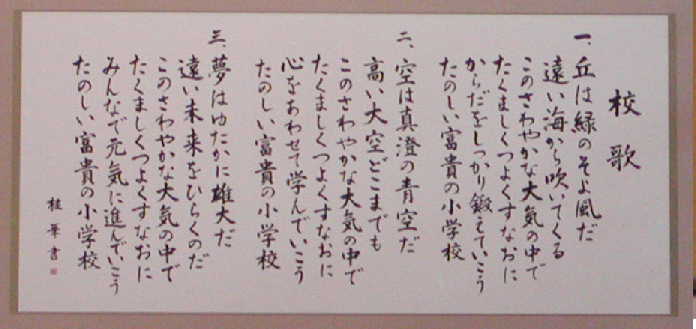 校歌
一、丘は緑のそよ風だ
遠い海から吹いてくる
このさわやかな大気の中で
たくましくつよくすなおに
からだをしっかり鍛えていこう
たのしい富貴の小学校
二、空は真澄の青空だ
高い大空どこまでも
このさわやかな大気の中で
たくましくつよくすなおに
心をあわせて学んでいこう
たのしい富貴の小学校
三、夢はゆたかに雄大だ
遠い未来をひらくのだ
このさわやかな大気の中で
たくましくつよくすなおに
みんなで元気に進んでいこう
たのしい富貴の小学校
桂華書